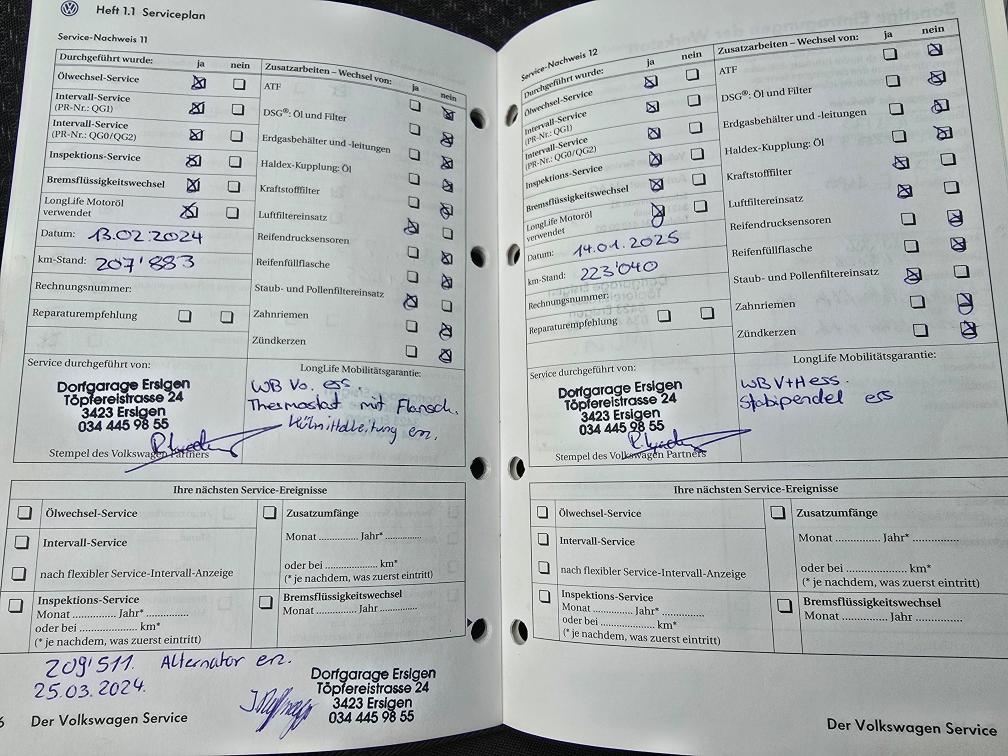 Heft 1.1 Serviceplan
Service-Nachweis 11
Durchgeführt wurde: ja nein
Ölwechsel-Service
Intervall-Service
(PR-Nr.: QG1)
Intervall-Service
(PR-Nr.: QG0/QG2)
Inspektions-Service
Bremsflüssigkeitswechsel
LongLife Motoröl
verwendet
Datum: 13.02.2024
km-Stand: 207'883
Rechnungsnummer:
Reparaturempfehlung
Zusatzarbeiten – Wechsel von: ja nein
ATF
DSG®: Öl und Filter
Erdgasbehälter und -leitungen
Haldex-Kupplung: Öl
Kraftstofffilter
Luftfiltereinsatz
Reifendrucksensoren
Reifenfüllflasche
Staub- und Pollenfiltereinsatz
Zahnriemen
Zündkerzen
Service durchgeführt von:
Dorfgarage Ersigen
Töpfereistrasse 24
3423 Ersigen
034 445 98 55
Stempel des Volkswagen Partners
LongLife Mobilitätsgarantie:
WB Vo. ess.
Thermostat mit Flansch.
Kühlmittelleitung erz.
Ihre nächsten Service-Ereignisse
Ölwechsel-Service
Intervall-Service
nach flexibler Service-Intervall-Anzeige
Inspektions-Service
Monat .............. Jahr* ..............
oder bei .................... km*
(* je nachdem, was zuerst eintritt)
Zusatzumfänge
Monat .............. Jahr* ..............
oder bei .................... km*
(* je nachdem, was zuerst eintritt)
Bremsflüssigkeitswechsel
Monat .............. Jahr ..............
209'511. Alternator erz.
25.03.2024.
Dorfgarage Ersigen
Töpfereistrasse 24
3423 Ersigen
034 445 98 55
6 Der Volkswagen Service
Service-Nachweis 12
Durchgeführt wurde: ja nein
Ölwechsel-Service
Intervall-Service
(PR-Nr.: QG1)
Intervall-Service
(PR-Nr.: QG0/QG2)
Inspektions-Service
Bremsflüssigkeitswechsel
LongLife Motoröl
verwendet
Datum: 14.01.2025
km-Stand: 223'040
Rechnungsnummer:
Reparaturempfehlung
Zusatzarbeiten – Wechsel von: ja nein
ATF
DSG®: Öl und Filter
Erdgasbehälter und -leitungen
Haldex-Kupplung: Öl
Kraftstofffilter
Luftfiltereinsatz
Reifendrucksensoren
Reifenfüllflasche
Staub- und Pollenfiltereinsatz
Zahnriemen
Zündkerzen
Service durchgeführt von:
Dorfgarage Ersigen
Töpfereistrasse 24
3423 Ersigen
034 445 98 55
Stempel des Volkswagen Partners
LongLife Mobilitätsgarantie:
WB V+H ess.
Stabipendel ess
Ihre nächsten Service-Ereignisse
Ölwechsel-Service
Intervall-Service
nach flexibler Service-Intervall-Anzeige
Inspektions-Service
Monat .............. Jahr* ..............
oder bei .................... km*
(* je nachdem, was zuerst eintritt)
Zusatzumfänge
Monat .............. Jahr* ..............
oder bei .................... km*
(* je nachdem, was zuerst eintritt)
Bremsflüssigkeitswechsel
Monat .............. Jahr ..............
Der Volkswagen Service